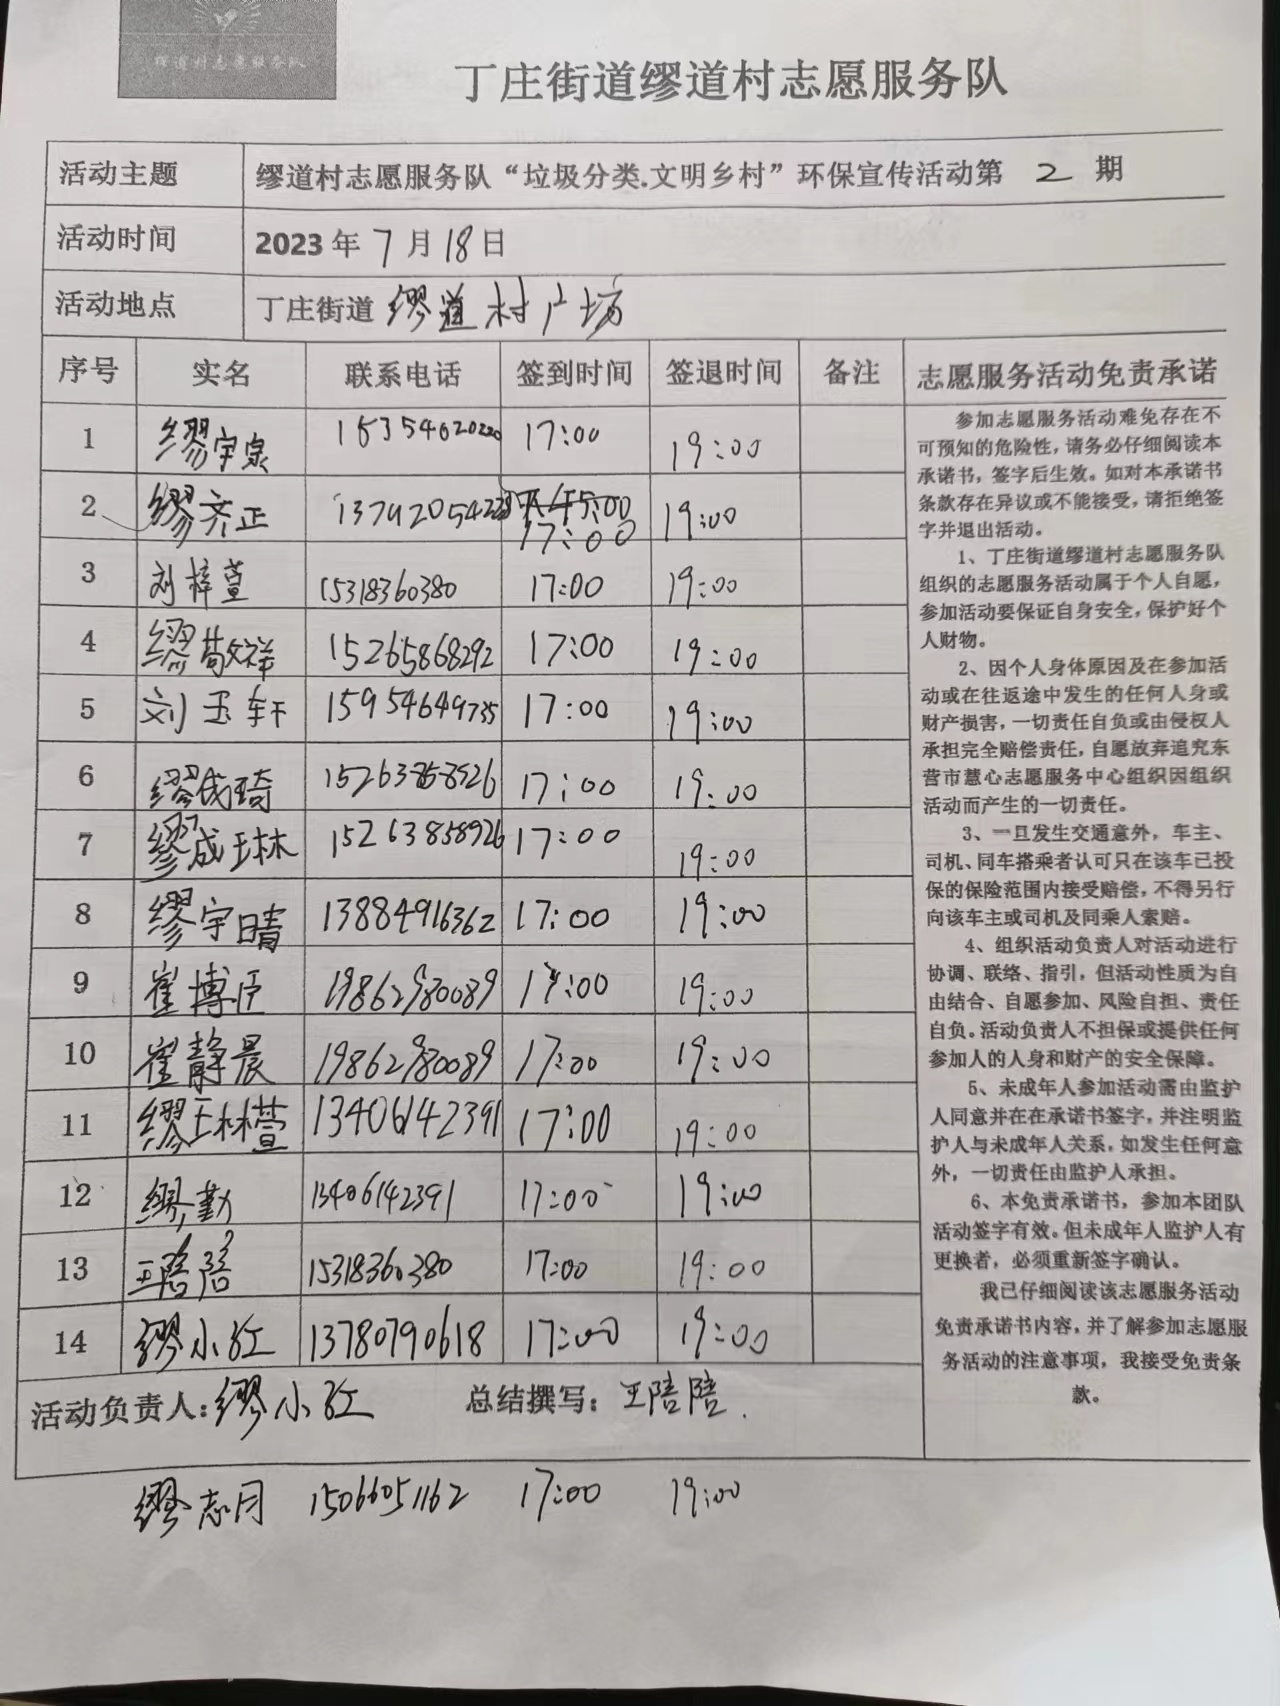 缪道村志愿服务队
丁庄街道缪道村志愿服务队
活动主题 缪道村志愿服务队“垃圾分类.文明乡村”环保宣传活动第 2 期
活动时间 2023年7月18日
活动地点 丁庄街道 缪道村广场
序号 实名 联系电话 签到时间 签退时间 备注
1 缪宇泉 17:00 19:00
2 缪齐正 17:00 19:00
3 刘梓萱 15318360380 17:00 19:00
4 缪敬祥 15265868292 17:00 19:00
5 刘玉轩 17:00 19:00
6 缪成琦 15263858926 17:00 19:00
7 缪成琳 15263858926 17:00 19:00
8 缪宇晴 13884916362 17:00 19:00
9 崔博臣 19862980089 17:00 19:00
10 崔静晨 19862980089 17:00 19:00
11 缪琳萱 13406142391 17:00 19:00
12 缪勤 13406142391 17:00 19:00
13 王陪陪 15318360380 17:00 19:00
14 缪小红 13780790618 17:00 19:00
活动负责人:缪小红 总结撰写：王陪陪.
缪志同 15066051162 17:00 19:00
志愿服务活动免责承诺
参加志愿服务活动难免存在不
可预知的危险性，请务必仔细阅读本
承诺书，签字后生效。如对本承诺书
条款存在异议或不能接受，请拒绝签
字并退出活动。
1、丁庄街道缪道村志愿服务队
组织的志愿服务活动属于个人自愿，
参加活动要保证自身安全，保护好个
人财物。
2、因个人身体原因及在参加活
动或在往返途中发生的任何人身或
财产损害，一切责任自负或由侵权人
承担完全赔偿责任，自愿放弃追究东
营市慧心志愿服务中心组织因组织
活动而产生的一切责任。
3、一旦发生交通意外，车主、
司机、同车搭乘者认可只在该车已投
保的保险范围内接受赔偿，不得另行
向该车主或司机及同乘人索赔。
4、组织活动负责人对活动进行
协调、联络、指引，但活动性质为自
由结合、自愿参加、风险自担、责任
自负。活动负责人不担保或提供任何
参加人的人身和财产的安全保障。
5、未成年人参加活动需由监护
人同意并在在承诺书签字，并注明监
护人与未成年人关系，如发生任何意
外，一切责任由监护人承担。
6、本免责承诺书，参加本团队
活动签字有效。但未成年人监护人有
更换者，必须重新签字确认。
我已仔细阅读该志愿服务活动
免责承诺书内容，并了解参加志愿服
务活动的注意事项，我接受免责条
款。